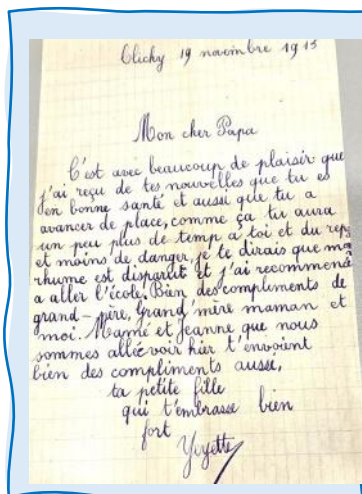 Clichy 19 novembre 1915
Mon cher Papa
C'est avec beaucoup de plaisir que
j'ai reçu de tes nouvelles que tu es
en bonne santé et aussi que tu a
avancer de place, comme ça tu aura
un peu plus de temp a toi et du rep
et moins de danger, je te dirais que mo
rhume est disparut et j'ai recommencé
a aller l'école. Bien des compliments de
grand-père, Grand'mère maman et
moi. Mamé et Jeanne que nous
sommes allié voir hier t'envoient
bien des compliments aussi,
ta petite fille
qui t'embrasse bien
fort
Yoyette